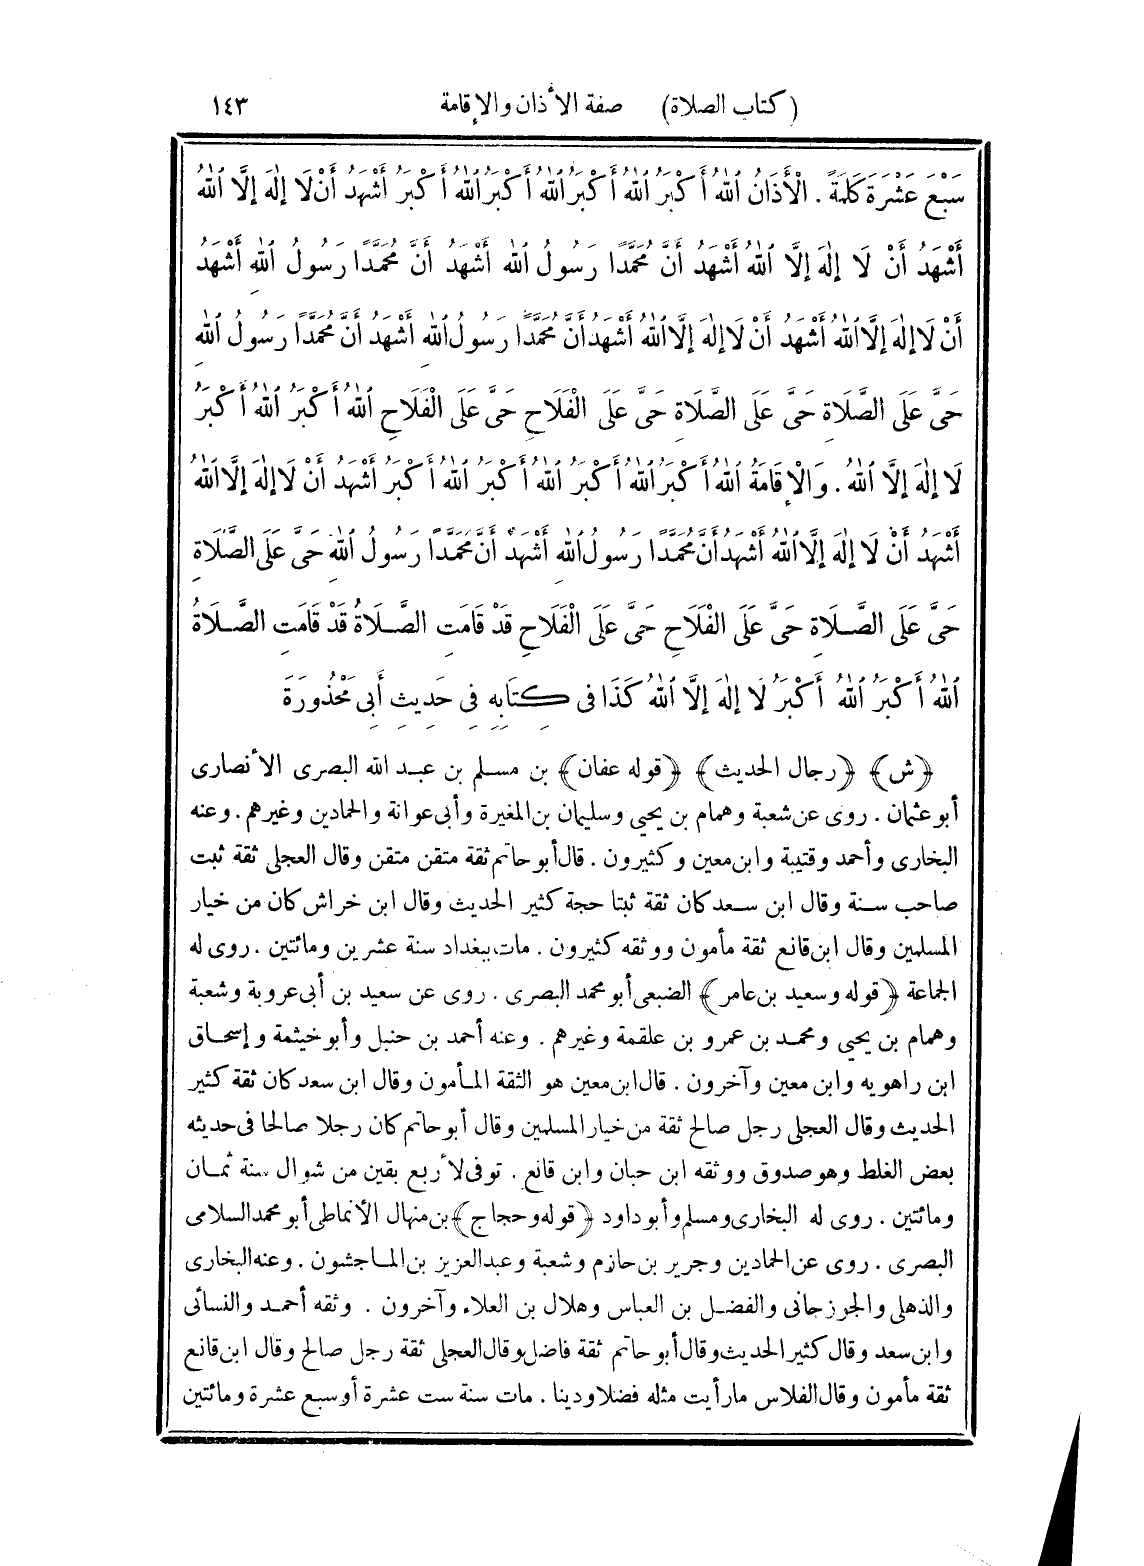 (كتاب الصلاة) صفة الأذان والإقامة ١٤٣
سَبْعَ عَشْرَةَ كَلِمَةً . الْأَذَانُ اَللهُ أَكْبَرُ اَللهُ أَكْبَرُ اَللهُ أَكْبَرُ اَللهُ أَكْبَرُ أَشْهَدُ أَنْ لَا إِلٰهَ إِلَّا اَللهُ
أَشْهَدُ أَنْ لَا إِلٰهَ إِلَّا اَللهُ أَشْهَدُ أَنَّ مُحَمَّدًا رَسُولُ اَللهِ أَشْهَدُ أَنَّ مُحَمَّدًا رَسُولُ اَللهِ أَشْهَدُ
أَنْ لَا إِلٰهَ إِلَّا اَللهُ أَشْهَدُ أَنْ لَا إِلٰهَ إِلَّا اَللهُ أَشْهَدُ أَنَّ مُحَمَّدًا رَسُولُ اَللهِ أَشْهَدُ أَنَّ مُحَمَّدًا رَسُولُ اَللهِ
حَىَّ عَلَى الصَّلَاةِ حَىَّ عَلَى الصَّلَاةِ حَىَّ عَلَى الْفَلَاحِ حَىَّ عَلَى الْفَلَاحِ اَللهُ أَكْبَرُ اَللهُ أَكْبَرُ
لَا إِلٰهَ إِلَّا اَللهُ . وَالْإِقَامَةُ اَللهُ أَكْبَرُ اَللهُ أَكْبَرُ اَللهُ أَكْبَرُ اَللهُ أَكْبَرُ أَشْهَدُ أَنْ لَا إِلٰهَ إِلَّا اَللهُ
أَشْهَدُ أَنْ لَا إِلٰهَ إِلَّا اَللهُ أَشْهَدُ أَنَّ مُحَمَّدًا رَسُولُ اَللهِ أَشْهَدُ أَنَّ مُحَمَّدًا رَسُولُ اَللهِ حَىَّ عَلَى الصَّلَاةِ
حَىَّ عَلَى الصَّلَاةِ حَىَّ عَلَى الْفَلَاحِ حَىَّ عَلَى الْفَلَاحِ قَدْ قَامَتِ الصَّلَاةُ قَدْ قَامَتِ الصَّلَاةُ
اَللهُ أَكْبَرُ اَللهُ أَكْبَرُ لَا إِلٰهَ إِلَّا اَللهُ كَذَا فِى كِتَابِهِ فِى حَدِيثِ أَبِى مَحْذُورَةَ
﴿ش﴾ ﴿رجال الحديث﴾ ﴿قوله عفان﴾ بن مسلم بن عبد الله البصرى الأنصارى
أبو عثمان . روى عن شعبة وهمام بن يحيى وسليمان بن المغيرة وأبى عوانة والحمادين وغيرهم . وعنه
البخارى وأحمد وقتيبة وابن معين وكثيرون . قال أبو حاتم ثقة متقن متقن وقال العجلى ثقة ثبت
صاحب سنة وقال ابن سعد كان ثقة ثبتا حجة كثير الحديث وقال ابن خراش كان من خيار
المسلمين وقال ابن قانع ثقة مأمون ووثقه كثيرون . مات ببغداد سنة عشرين ومائتين . روى له
الجماعة ﴿قوله وسعيد بن عامر﴾ الضبعى أبو محمد البصرى . روى عن سعيد بن أبى عروبة وشعبة
وهمام بن يحيى ومحمد بن عمرو بن علقمة وغيرهم . وعنه أحمد بن حنبل وأبو خيثمة وإسحاق
ابن راهويه وابن معين وآخرون . قال ابن معين هو الثقة المأمون وقال ابن سعد كان ثقة كثير
الحديث وقال العجلى رجل صالح ثقة من خيار المسلمين وقال أبو حاتم كان رجلا صالحا فى حديثه
بعض الغلط وهو صدوق ووثقه ابن حبان وابن قانع . توفى لأربع بقين من شوال سنة ثمان
ومائتين . روى له البخارى ومسلم وأبو داود ﴿قوله وحجاج﴾ بن منهال الأنماطى أبو محمد السلامى
البصرى . روى عن الحمادين وجرير بن حازم وشعبة وعبد العزيز بن الماجشون . وعنه البخارى
والذهلى والجوزجانى والفضل بن العباس وهلال بن العلاء وآخرون . وثقه أحمد والنسائى
وابن سعد وقال كثير الحديث وقال أبو حاتم ثقة فاضل وقال العجلى ثقة رجل صالح وقال ابن قانع
ثقة مأمون وقال الفلاس مارأيت مثله فضلا ودينا . مات سنة ست عشرة أو سبع عشرة ومائتين